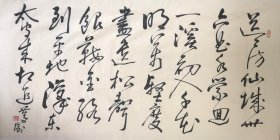 迢〻访仙城卅
六曲水回萦
一溪初入千花
明万壑度
尽是松声
银鞍金络
到平地汉东
太守来相迎